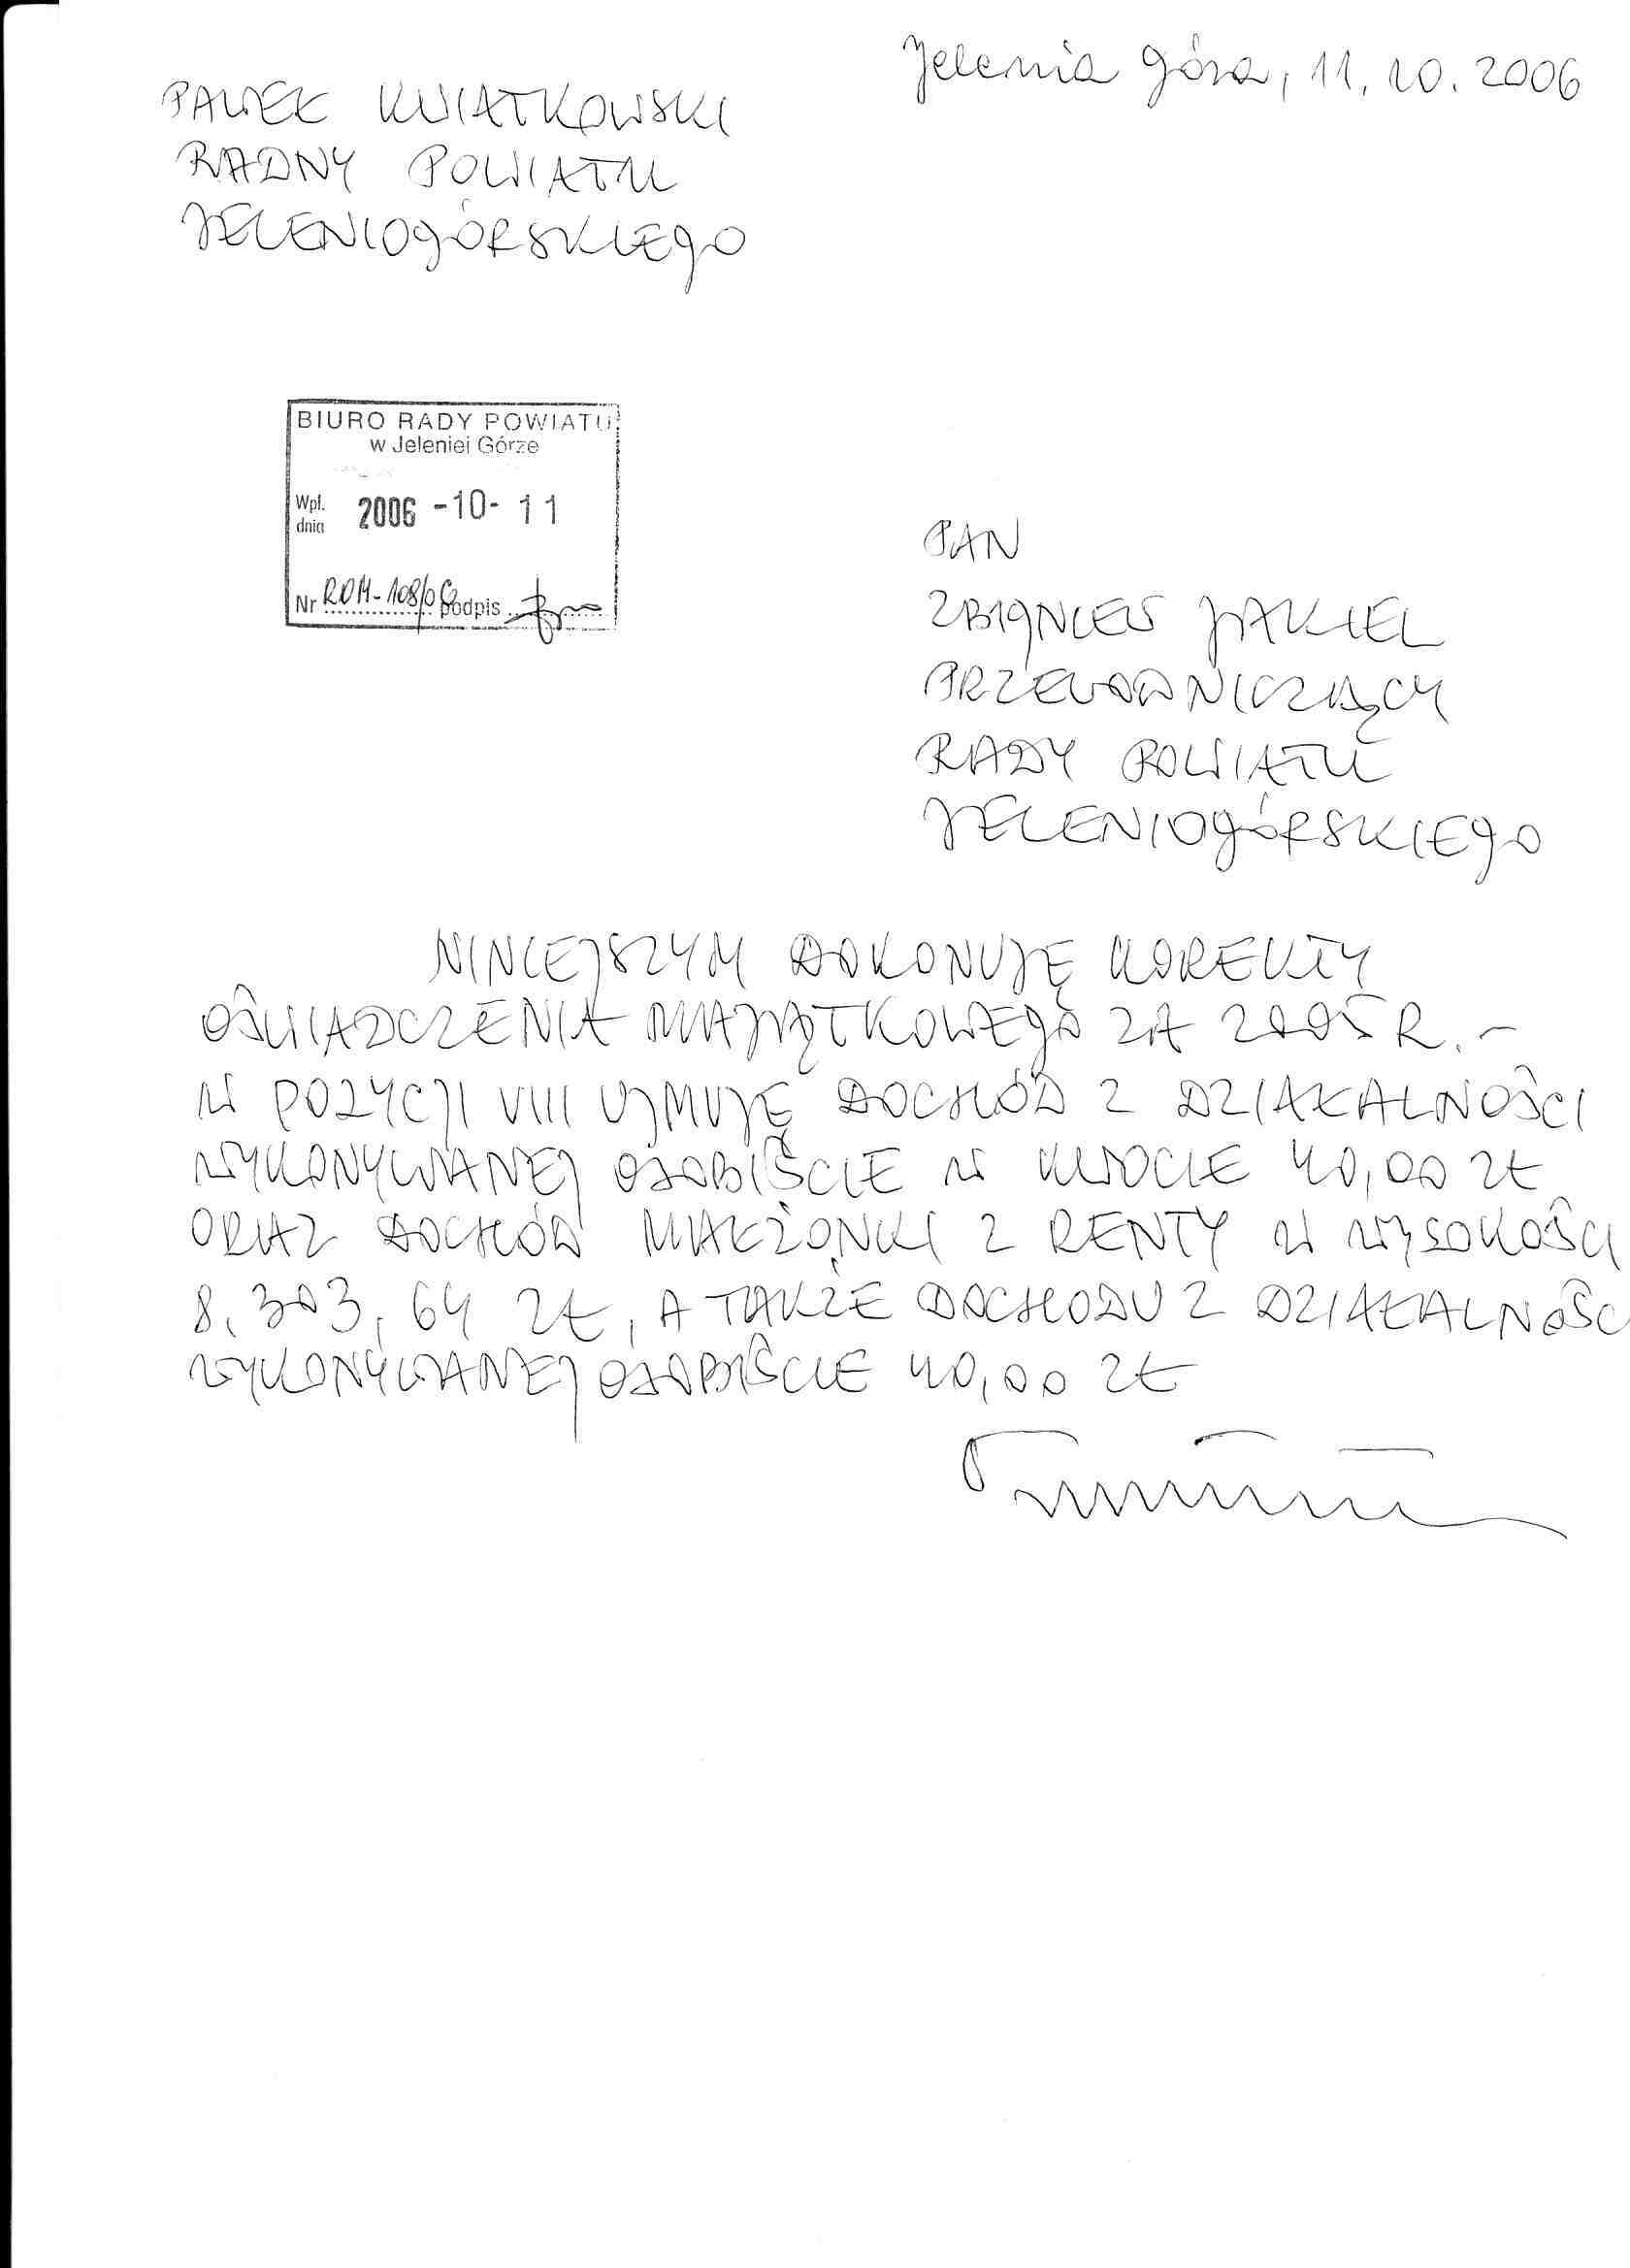 Jelenia Góra, 11.10.2006
PAWEŁ KWIATKOWSKI
RADNY POWIATU
JELENIOGÓRSKIEGO
BIURO RADY POWIATU
w Jeleniej Górze
Wpł. dnia 2006 -10- 11
Nr ROM-108/06 podpis
PAN
ZBIGNIEW JAKIEL
PRZEWODNICZĄCY
RADY POWIATU
JELENIOGÓRSKIEGO
NINIEJSZYM DOKONUJĘ KOREKTY
OŚWIADCZENIA MAJĄTKOWEGO ZA 2005 R. –
W POZYCJI VIII UJMUJĘ DOCHÓD Z DZIAŁALNOŚCI
WYKONYWANEJ OSOBIŚCIE W KWOCIE 40,00 ZŁ
ORAZ DOCHÓD MAŁŻONKI Z RENTY W WYSOKOŚCI
8.303,64 ZŁ, A TAKŻE DOCHODU Z DZIAŁALNOŚC
WYKONYWANEJ OSOBIŚCIE 40,00 ZŁ